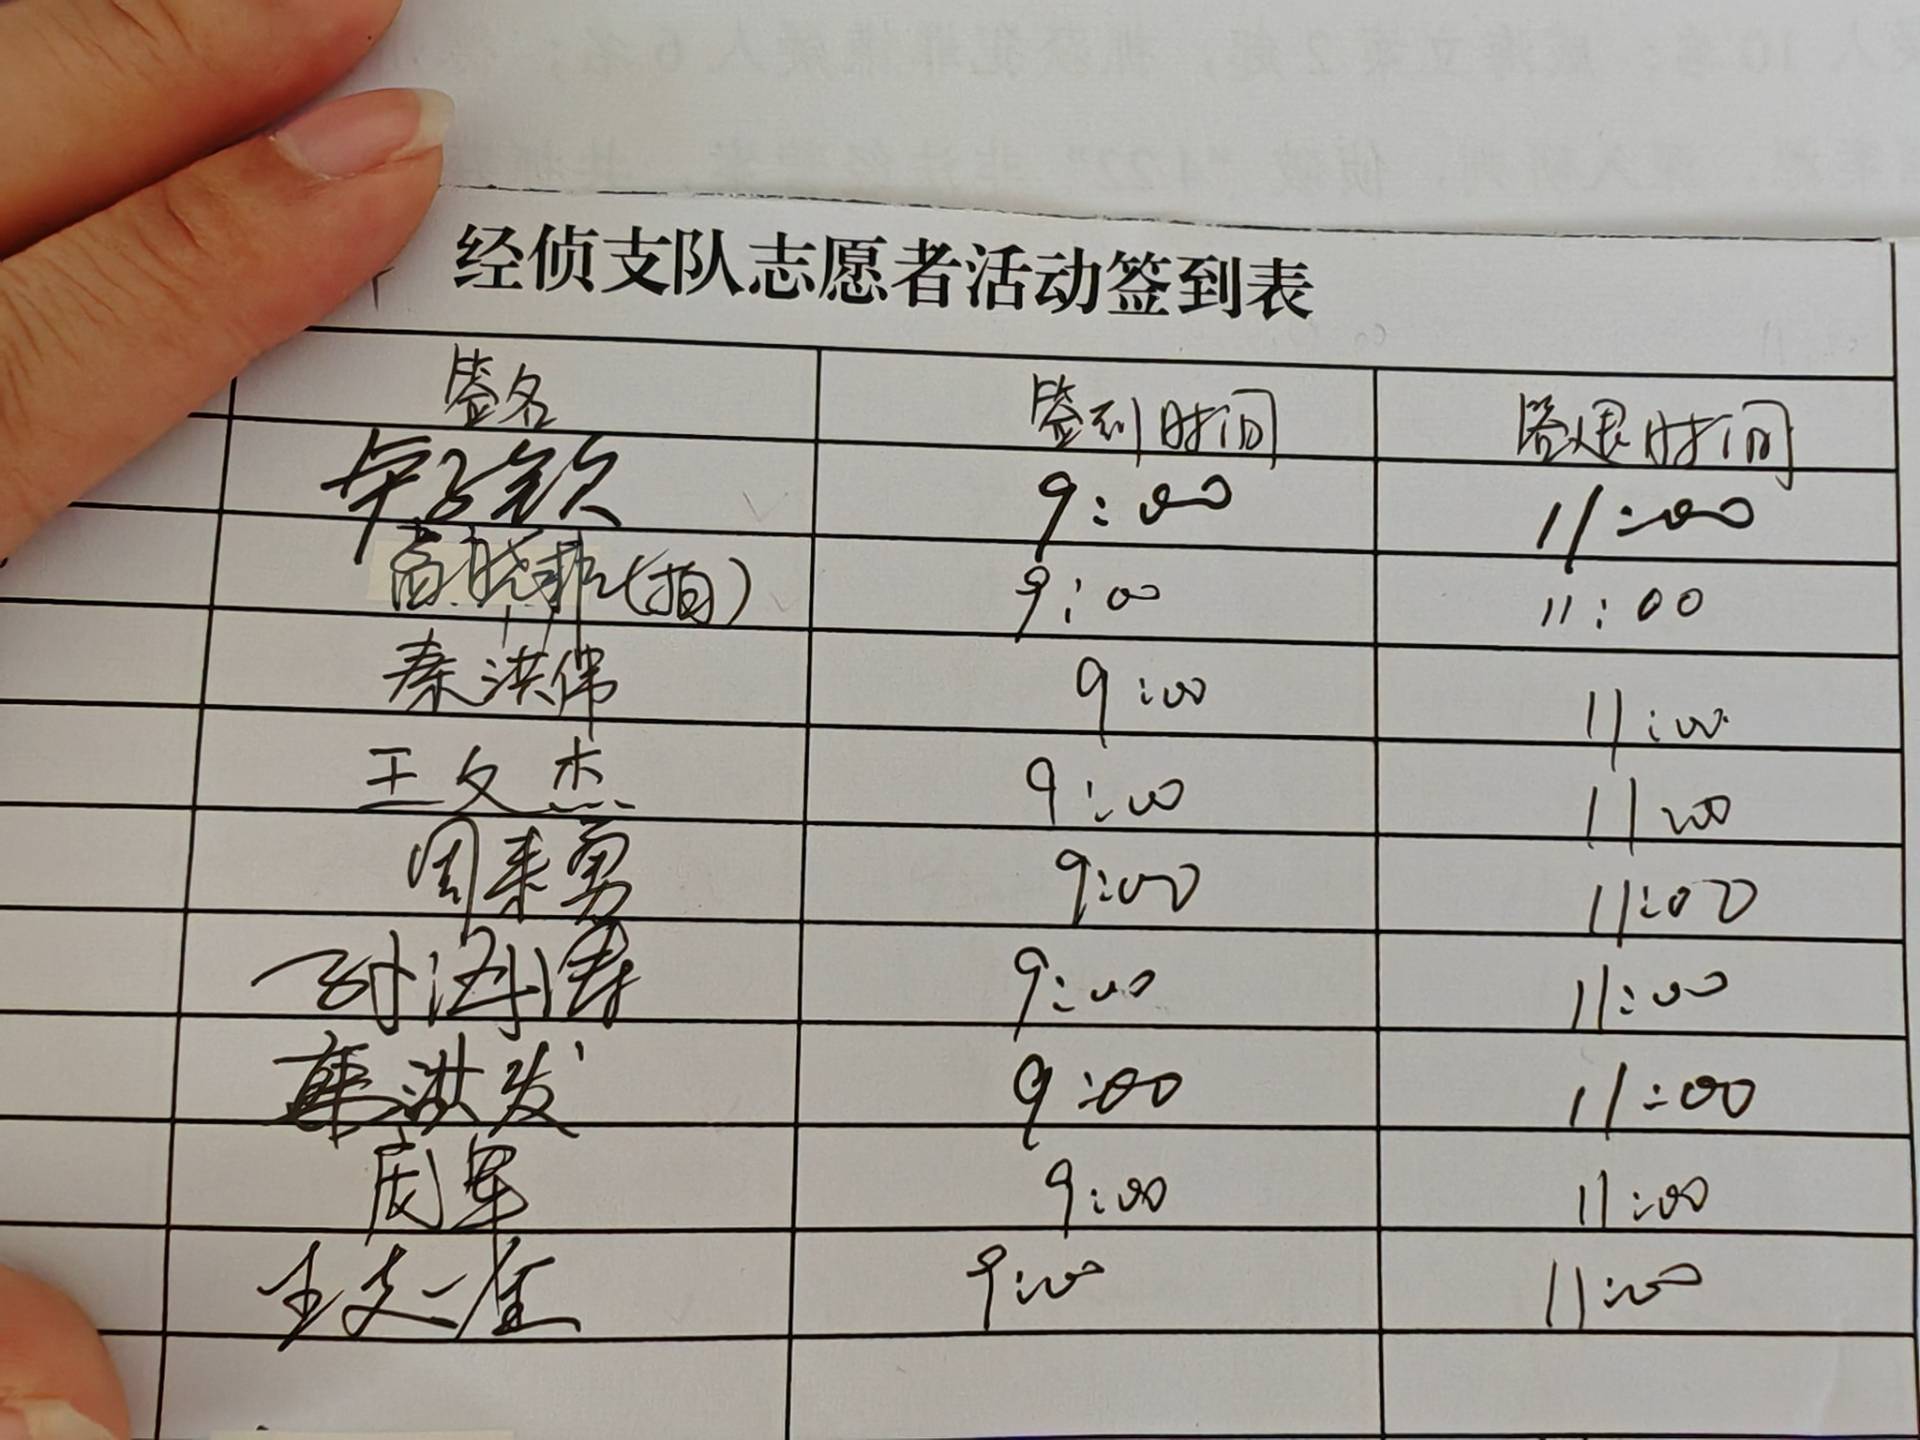 经侦支队志愿者活动签到表
签名 签到时间 签退时间
9:00 11:00
(拍) 9:00 11:00
秦洪伟 9:00 11:00
王文杰 9:00 11:00
周来勇 9:00 11:00
孙海涛 9:00 11:00
韩洪发 9:00 11:00
周军 9:00 11:00
9:00 11:00